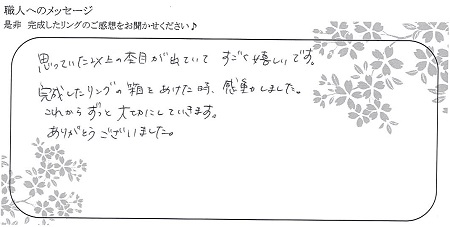 職人へのメッセージ
是非 完成したリングのご感想をお聞かせください♪
思っていた以上の杢目が出ていて すごく嬉しいです。
完成したリングの箱をあけた時、感動しました。
これからずっと大切にしていきます。
ありがとうございました。